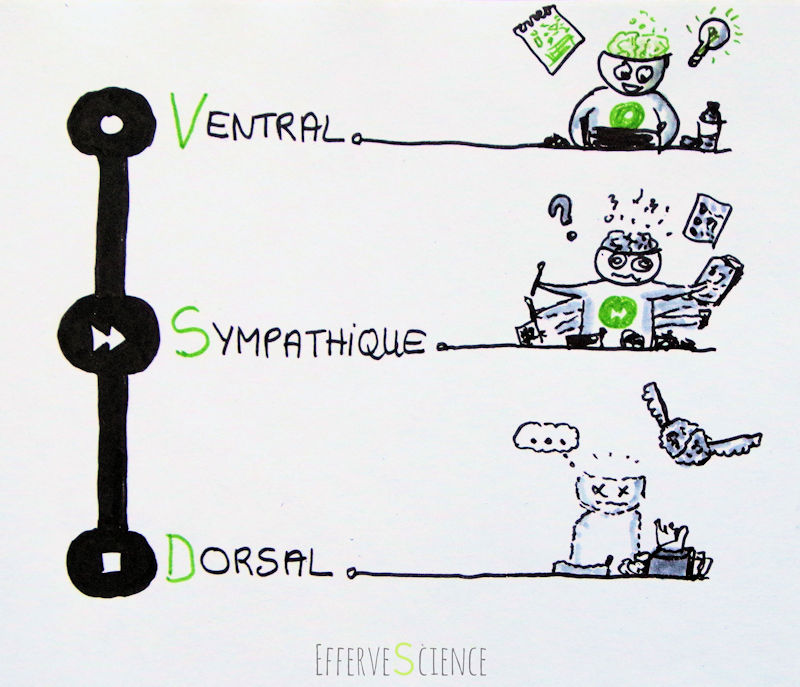 VENTRAL
?
SYMPATHIQUE
...
DORSAL
EFFERVESCIENCE